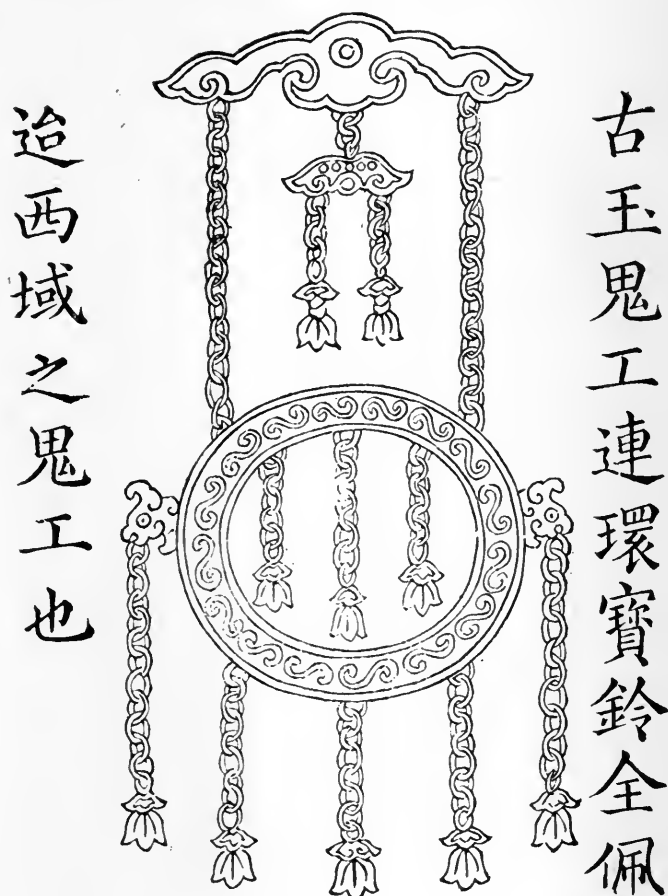 古玉鬼工連環寶鈴全佩
迨西域之鬼工也